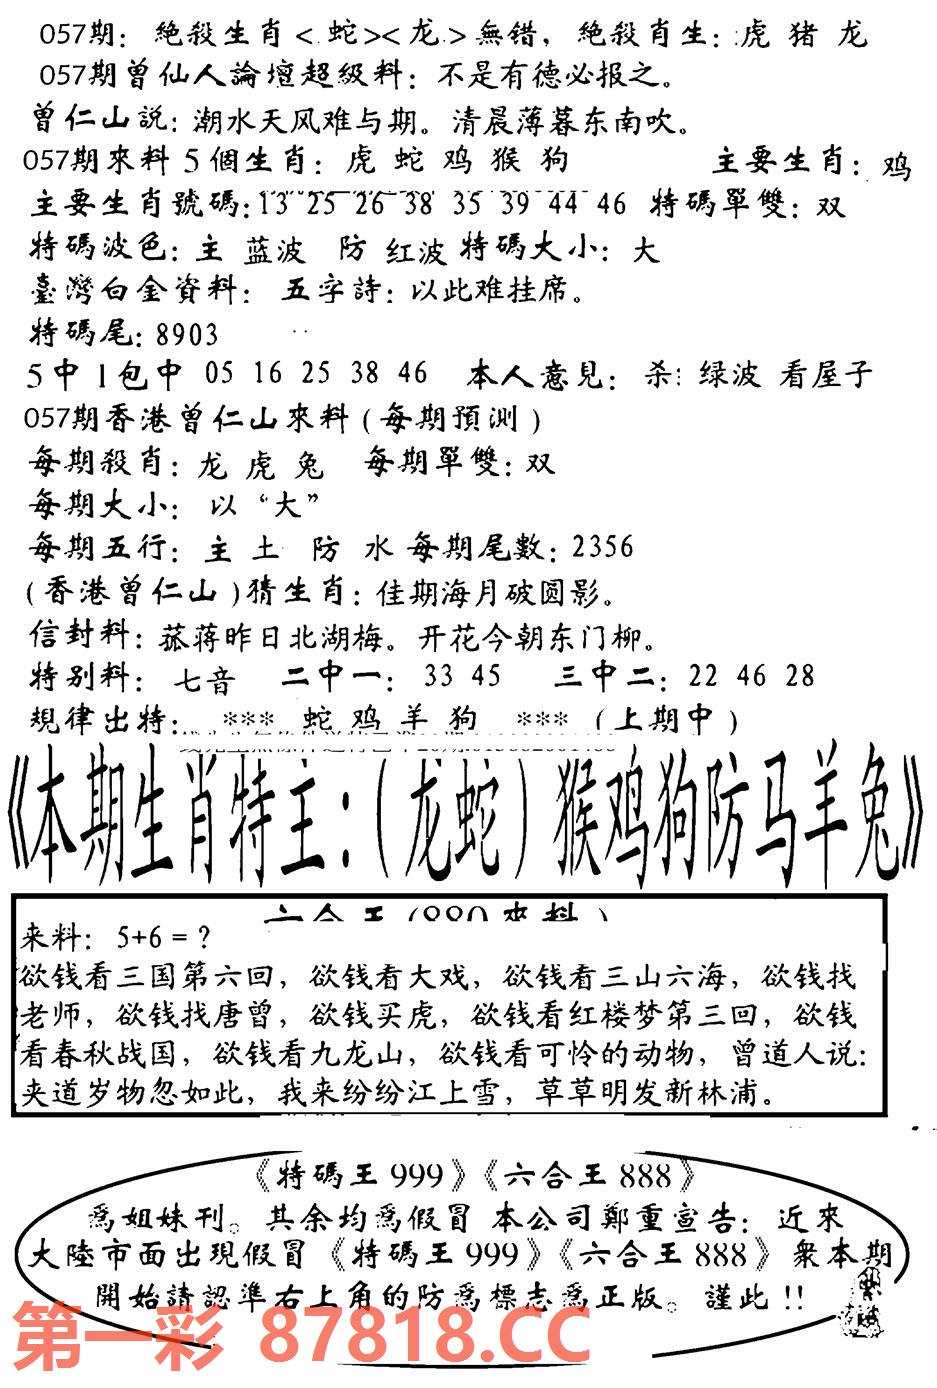 057期：絶殺生肖<蛇><龙>無错，絶殺肖生：虎 猪 龙
057期曾仙人論壇超級料：不是有德必报之。
曾仁山説：潮水天风难与期。清晨薄暮东南吹。
057期來料 5個生肖：虎 蛇 鸡 猴 狗 主要生肖：鸡
主要生肖號碼：13 25 26 38 35 39 44 46 特碼單雙：双
特碼波色：主 蓝波 防 红波 特碼大小：大
臺灣白金資料： 五字詩：以此难挂席。
特碼尾：8903
5中1包中 05 16 25 38 46 本人意見：杀：绿波 看屋子
057期香港曾仁山來料（每期預测）
每期殺肖：龙 虎 兔 每期單雙：双
每期大小： 以“大”
每期五行：主 土 防 水 每期尾數：2356
（香港曾仁山）猜生肖：佳期海月破圆影。
信封料：菰蒋昨日北湖梅。开花今朝东门柳。
特别料： 七音 二中一： 33 45 三中二：22 46 28
規律出特： *** 蛇 鸡 羊 狗 *** （上期中）
《本期生肖特主：（龙蛇）猴鸡狗防马羊兔》
六合王（880來料）
来料： 5+6 = ?
欲钱看三国第六回，欲钱看大戏，欲钱看三山六海，欲钱找
老师，欲钱找唐曾，欲钱买虎，欲钱看红楼梦第三回，欲钱
看春秋战国，欲钱看九龙山，欲钱看可怜的动物，曾道人说：
夹道岁物忽如此，我来纷纷江上雪，草草明发新林浦。
《特碼王999》《六合王888》
爲姐妹刊。其余均爲假冒 本公司鄭重宣告： 近來
大陸市面出現假冒《特碼王999》《六合王888》衆本期
開始請認準右上角的防爲標志爲正版。謹此!!
第一彩 87818.CC